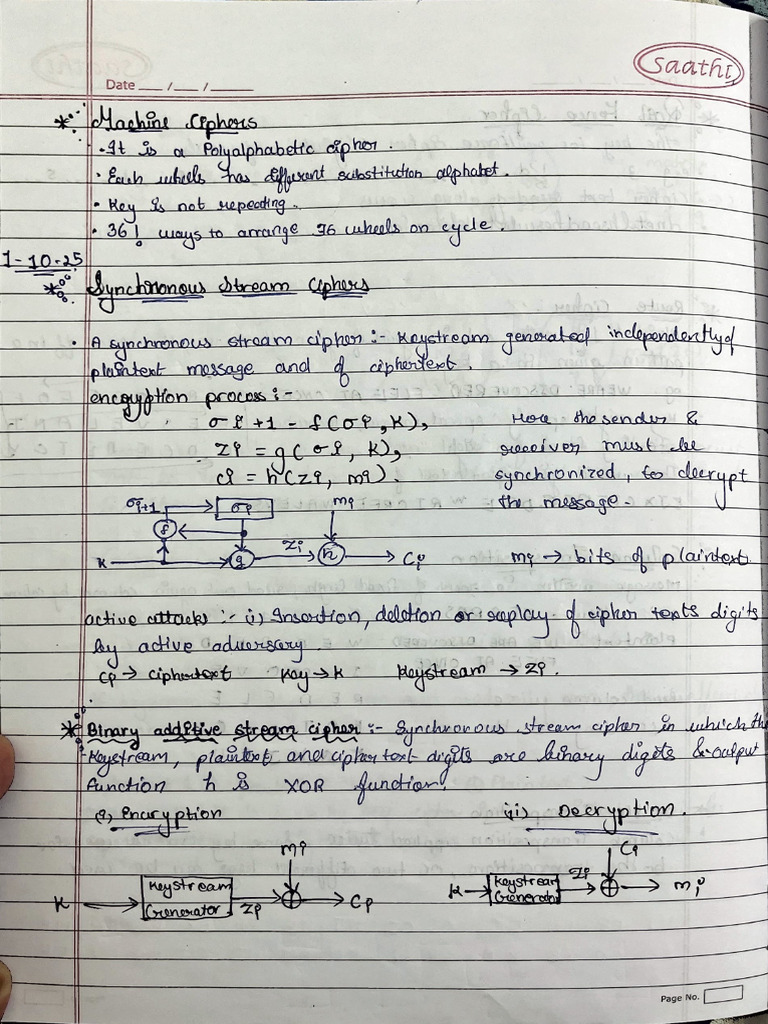 Saathi
Date ___ / ___ / _____
* Machine Ciphers
• It is a Polyalphabetic cipher.
• Each wheels has different substitution alphabet.
• Key is not repeating.
• 36! ways to arrange 36 wheels on cycle.
1-10-25
* Synchronous Stream Ciphers
• A synchronous stream cipher :- Keystream generated independently of
plaintext message and of ciphertext.
encryption process :-
σi+1 - f(σi, K),
zi = g(σi, K),
ci = h(zi, mi).
Here the sender &
receiver must be
synchronized, to decrypt
the message.
σi+1 σi mi
f
K g zi h Ci
mi → bits of plaintext
active attacks :- (i) Insertion, deletion or replay of cipher texts digits
by active adversary.
Ci → ciphertext Key → K Keystream → Zi.
* Binary additive stream cipher :- Synchronous stream cipher in which the
Keystream, plaintext and ciphertext digits are binary digits & output
function h is XOR function.
(i) Encryption (ii) Decryption.
mi Ci
K → Keystream Generator zi ⊕ → Ci
K → Keystream Generator zi ⊕ → mi
Page No.